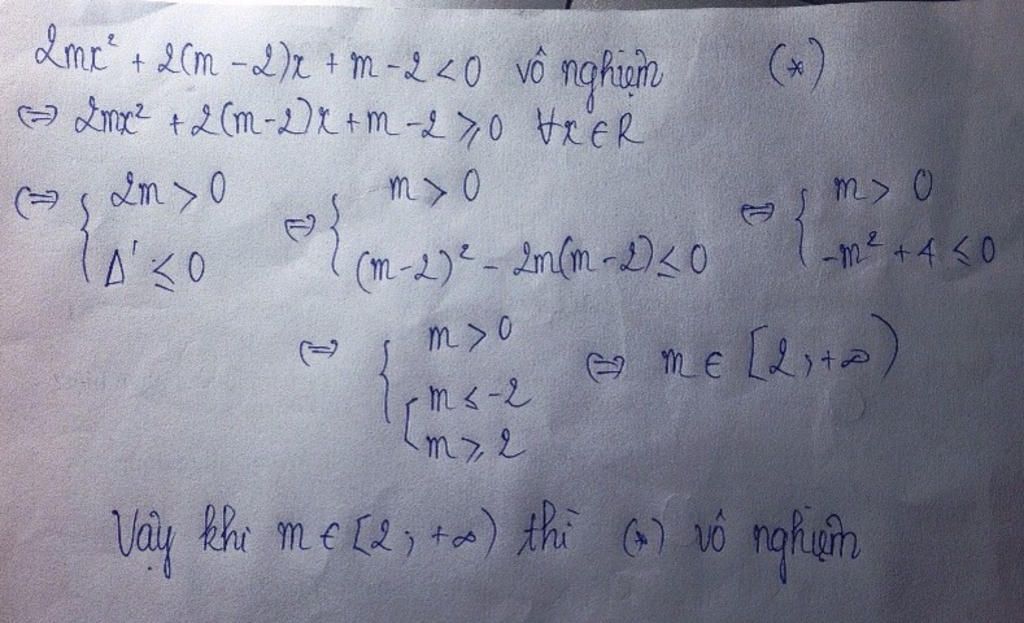 2mx² + 2(m - 2)x + m - 2 < 0 vô nghiệm (*)
⇔ 2mx² + 2(m-2)x + m - 2 ⩾ 0 ∀x ∈ R
⇔ { 2m > 0 ⇔ { m > 0 ⇔ { m > 0
Δ' ≤ 0 (m-2)² - 2m(m-2) ≤ 0 -m² + 4 ≤ 0
⇔ { m > 0 ⇔ m ∈ [2; +∞)
[ m ≤ -2
m ⩾ 2
Vậy khi m ∈ [2; +∞) thì (*) vô nghiệm